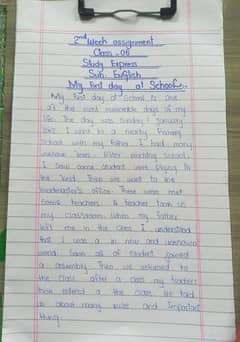 2nd Week assignment
Class - 06
Study Express
Sub: English
My first day at School.
My first day at School is one
of the most memorable days of my
life. The day was sunday 1 january
I went to a nearby Primary
School with my father. I had many
unknown faces. After reaching school,
I saw some student were playing in
the field. Then we went to the
headmaster's office. There were met
some teachers. A teacher took us
my classroom. When my father
left me in the class I understood
that I was a in new and unknown
world. Soon all of student joined
a assembly. Then we returned to
the class. after a class my teachers
have entered a the class. He told
us about many rules and important
thing.